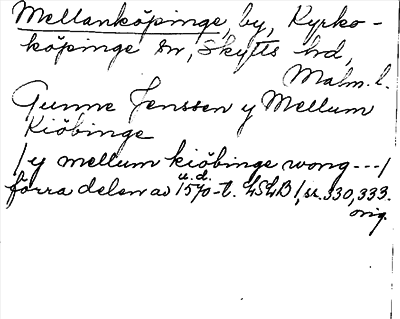 Mellanköpinge by, Kyrko-
köpinge sn, Skytts hd,
Malm. l.
Gunne Jenssen y Mellum
Kiöbinge
/y mellum kiöbinge wong---/
u. d.
förra delen av 1570-t. LSLB 1, s. 330, 333.
orig.